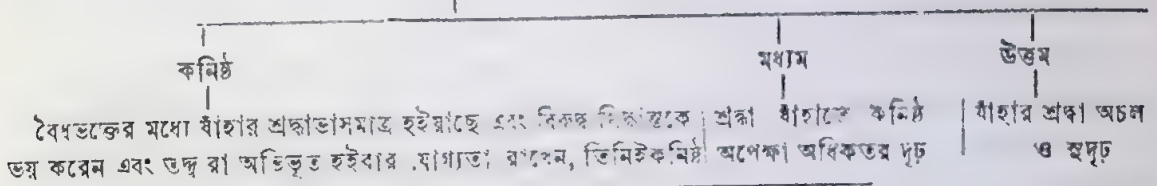 কনিষ্ঠ
মধ্যম
উত্তম
বৈধভক্তের মধ্যে যাঁহার শ্রদ্ধাভাসমাত্র হইয়াছে এবং বিরুদ্ধ সিদ্ধান্তকে
ভয় করেন এবং তদ্দ্বারা অভিভূত হইবার যোগ্যতা রাখেন, তিনিই কনিষ্ঠ
শ্রদ্ধা যাঁহাতে কনিষ্ঠ
অপেক্ষা অধিকতর দৃঢ়
যাঁহার শ্রদ্ধা অচল
ও সুদৃঢ়